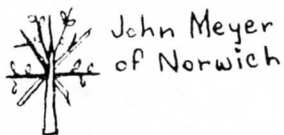 John Meyer
of Norwich